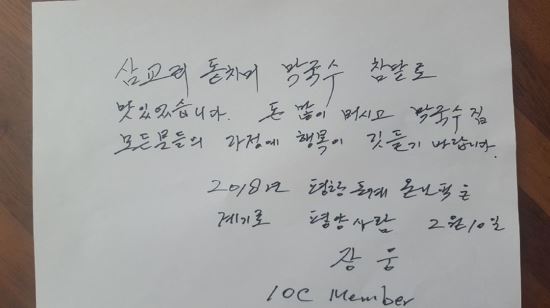 삼교리 동치미 막국수 참말로
맛있었습니다. 돈 많이 버시고 막국수 집
모든분들의 가정에 행복이 깃들기 바랍니다.
2018년 평창동계 올림픽을
계기로 평양사람 2월 10일
장 웅
IOC Member